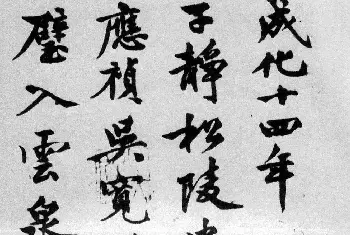 成化十四年
子靜松陵
應禎吳寬
璧入雲泉